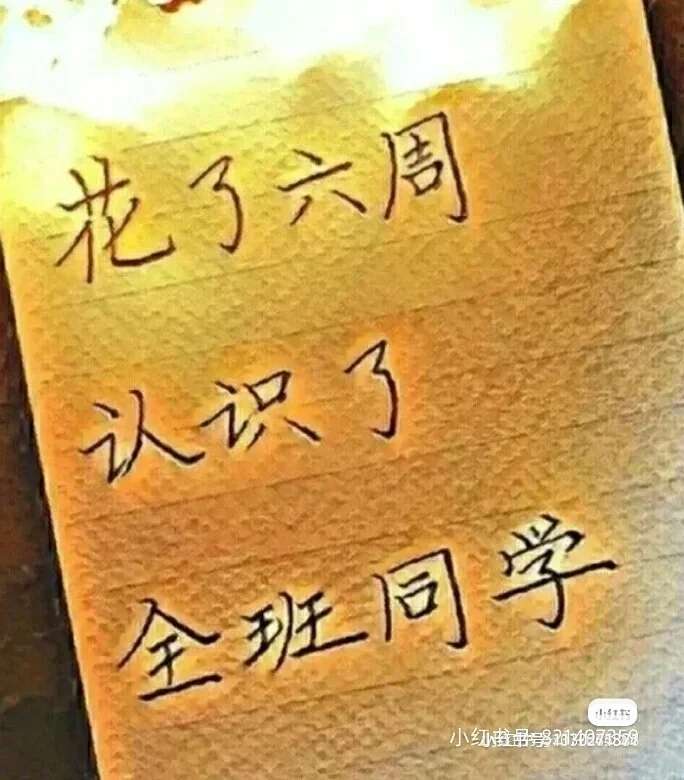 花了六周
认识了
全班同学
小红书
小红书号